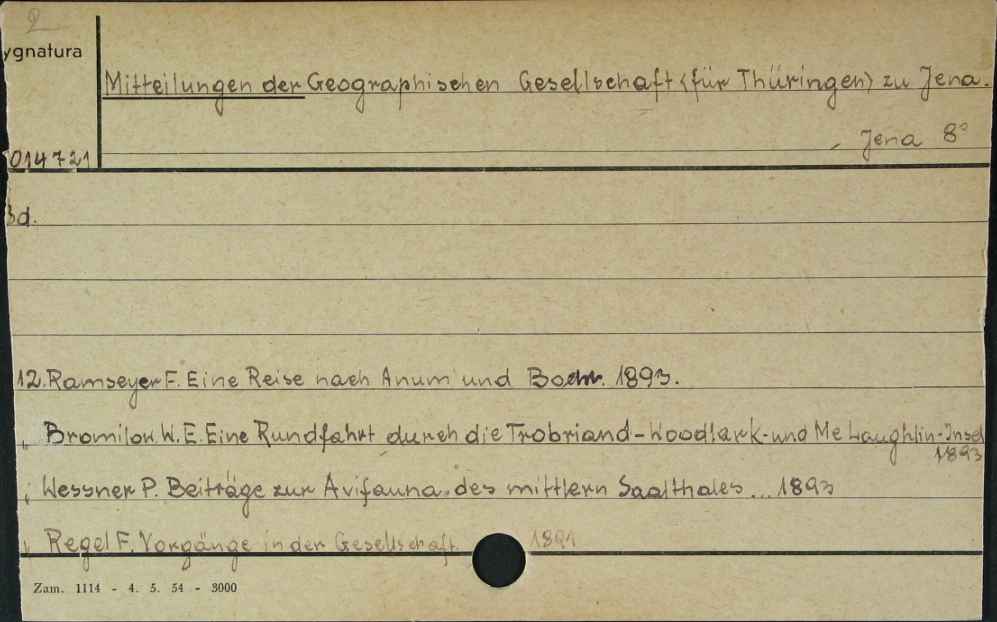 2
ygnatura
Mitteilungen der Geographischen Gesellschaft (für Thüringen) zu Jena.
Jena 8°
014721
Bd.
12. Ramseyer F. Eine Reise nach Anum und 1893.
„ Bromilow. W. E. Eine Rundfahrt durch die Trobriand-Woodlark-und Mc Laughlin-Insel
1893
„ Wessner P. Beiträge zur Avifauna des mittlern Saalthales ... 1893
„ Regel F. Vorgänge in der Gesellschaft. 1891
Zam. 1114 - 4. 5. 54 - 3000